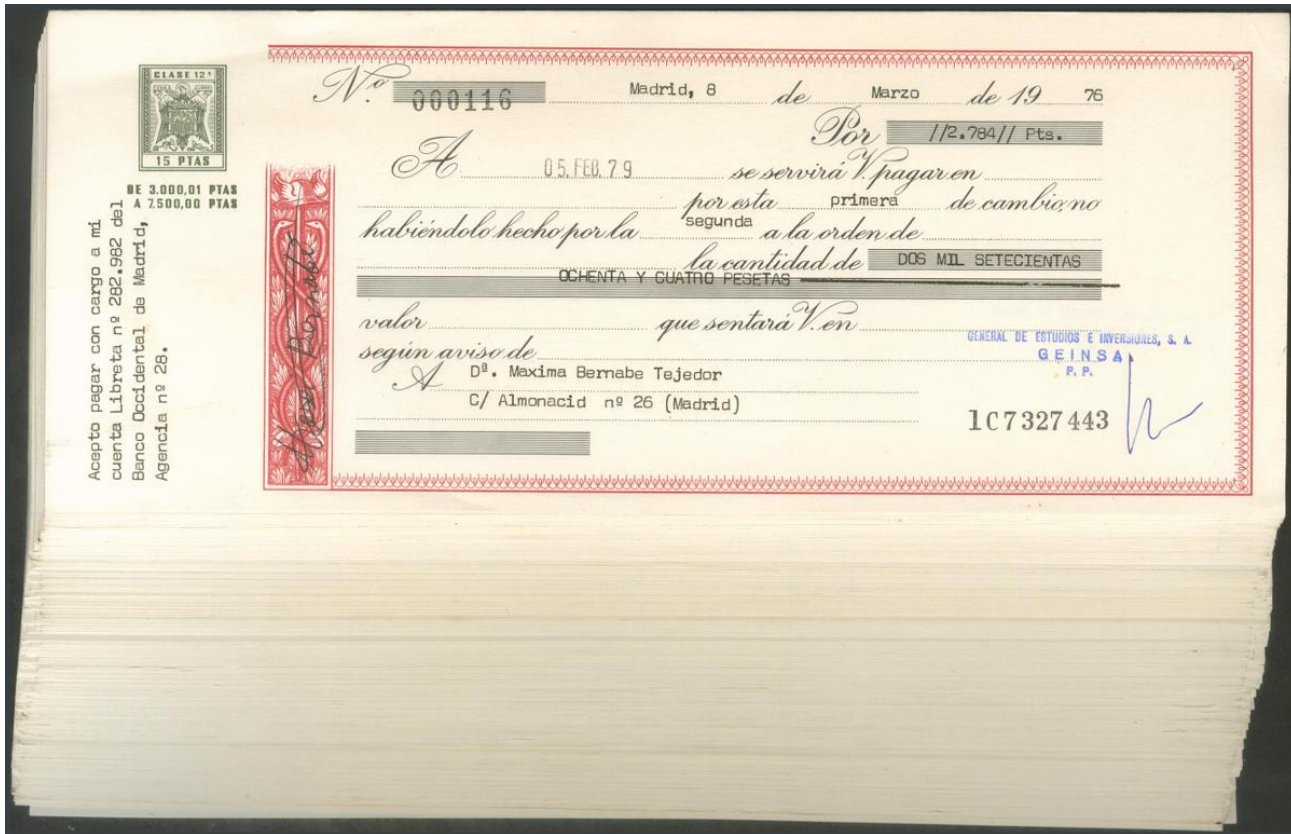 CLASE 12ª
15 PTAS
DE 3.000,01 PTAS
A 7.500,00 PTAS
Acepto pagar con cargo a mi
cuenta Libreta nº 282.982 del
Banco Occidental de Madrid,
Agencia nº 28.
Nº 000116 Madrid, 8 de Marzo de 19 76
Por //2.784// Pts.
A 05.FEB.79 se servirá V. pagar en
por esta primera de cambio, no
habiéndolo hecho por la segunda a la orden de
la cantidad de DOS MIL SETECIENTAS
OCHENTA Y CUATRO PESETAS
valor que sentará V. en
según aviso de
GENERAL DE ESTUDIOS E INVERSIONES, S. A.
GEINSA
P. P.
A Dª. Maxima Bernabe Tejedor
C/ Almonacid nº 26 (Madrid)
1C7327443